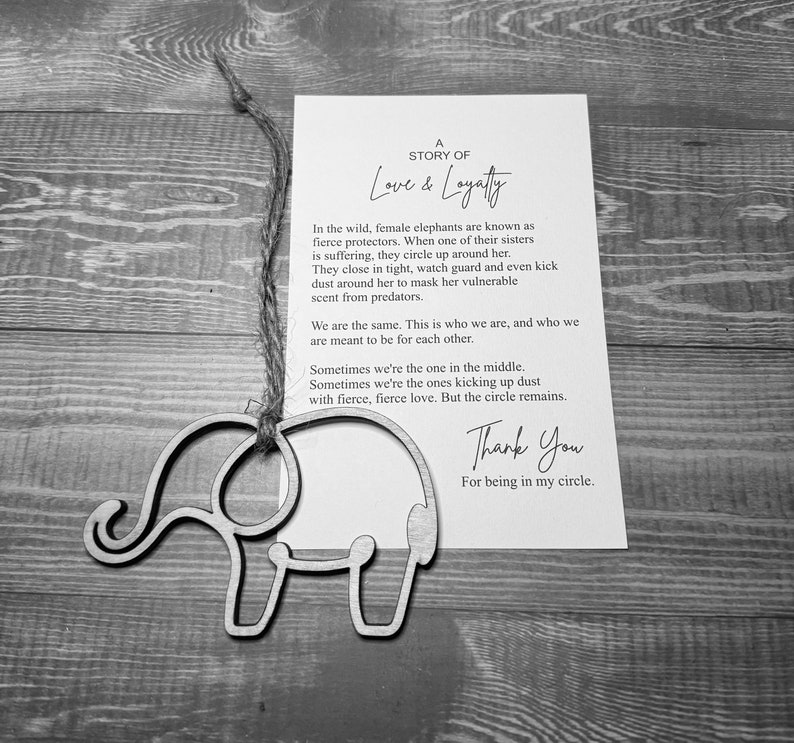 A
STORY OF
Love & Loyalty
In the wild, female elephants are known as
fierce protectors. When one of their sisters
is suffering, they circle up around her.
They close in tight, watch guard and even kick
dust around her to mask her vulnerable
scent from predators.
We are the same. This is who we are, and who we
are meant to be for each other.
Sometimes we're the one in the middle.
Sometimes we're the ones kicking up dust
with fierce, fierce love. But the circle remains.
Thank You
For being in my circle.